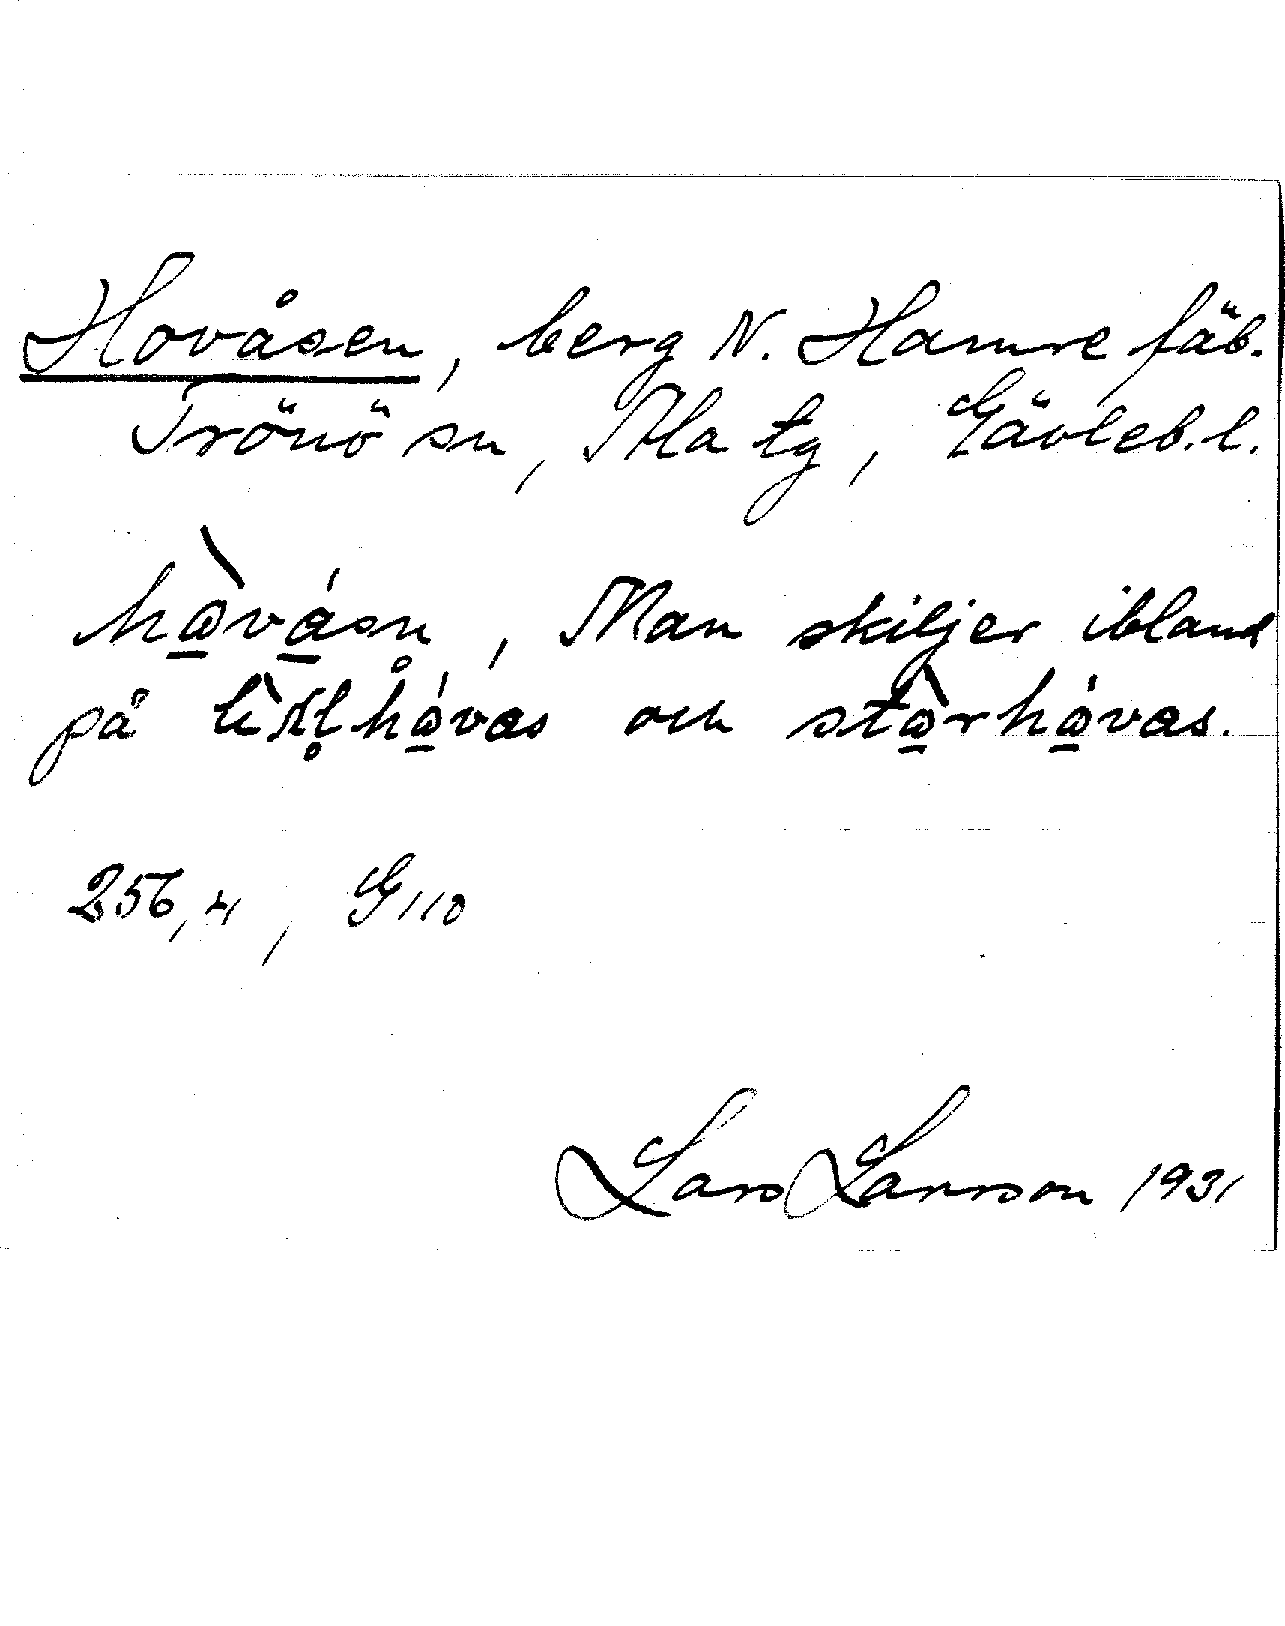 Hovåsen, berg N. Hamre fäb.
Trönö sn, Ala tg, Gävleb. l.
hàvásn, Man skiljer ibland
på hávas och stàrhávas.
256,4, G110
Lars Larsson 1931